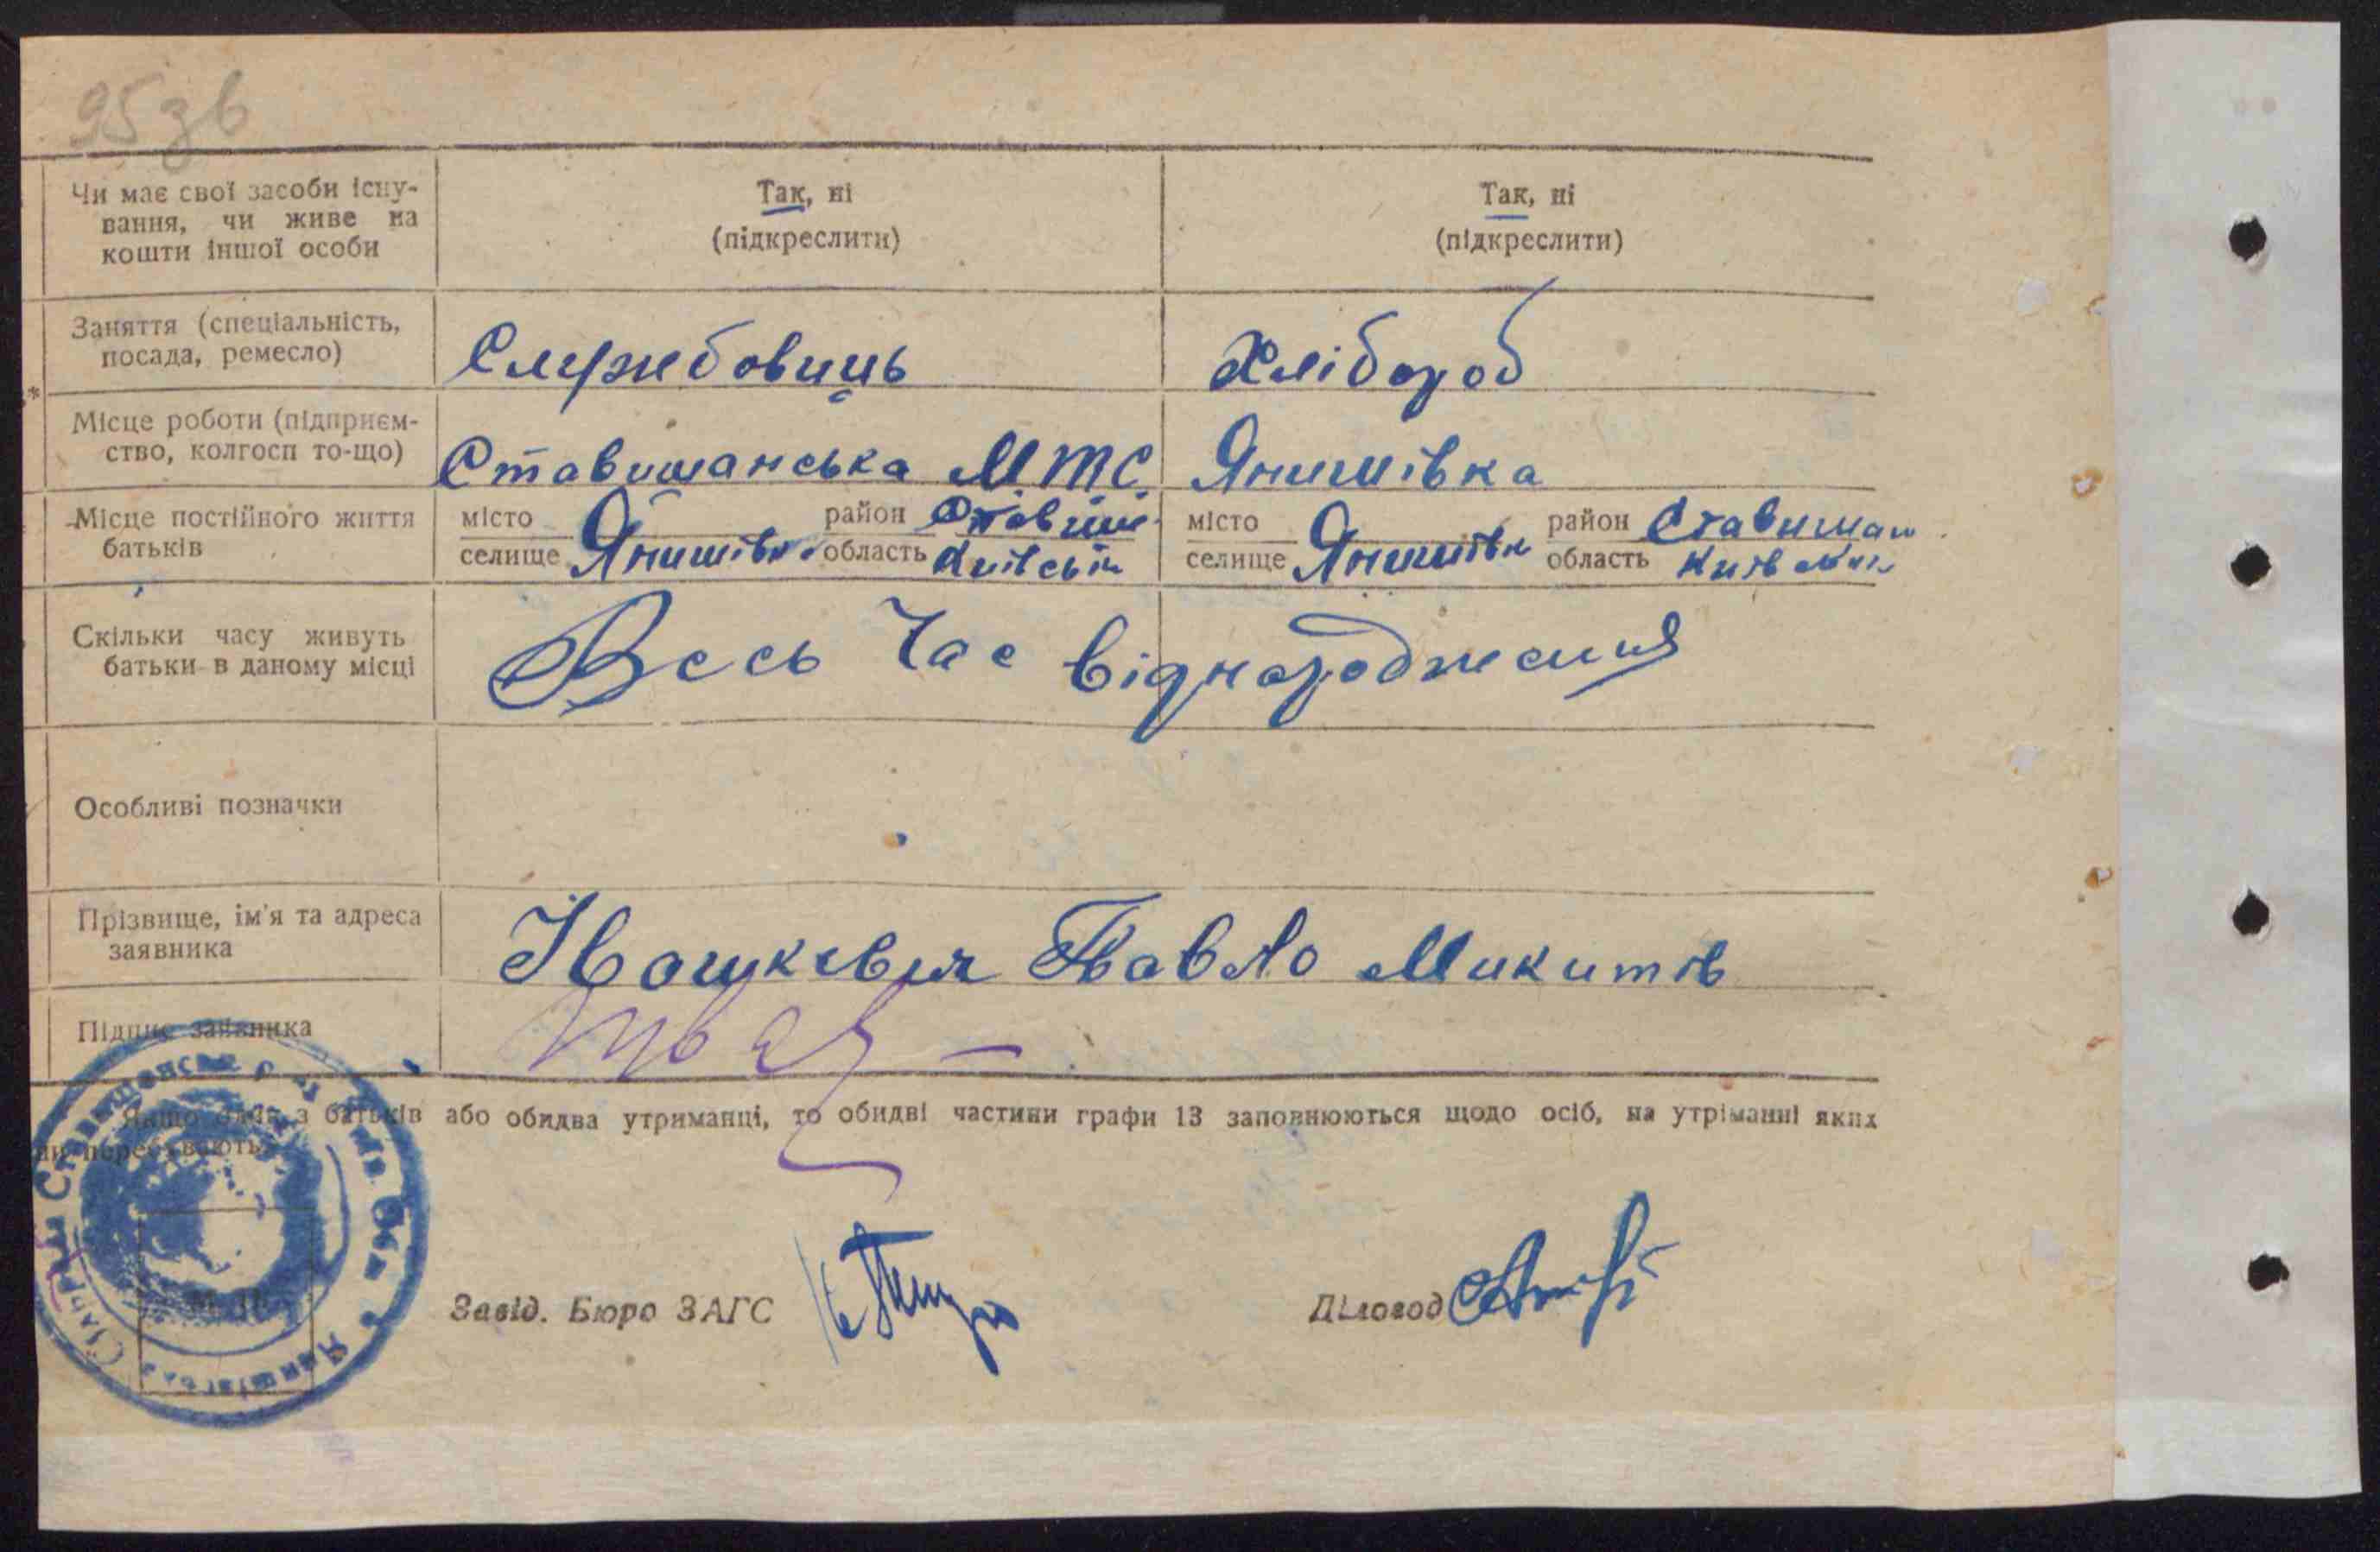 95зв
Чи має свої засоби існу-
вання, чи живе на
кошти іншої особи
Так, ні
(підкреслити)
Так, ні
(підкреслити)
Заняття (спеціальність,
посада, ремесло)
Службовиць
Хлібороб
Місце роботи (підприєм-
ство, колгосп то-що)
Ставищанська М.Т.С.
Янишівка
Місце постійного життя
батьків
місто
селище Янишівка
район Ставище
область Київські
місто
селище Янишівк
район Ставищан
область
Скільки часу живуть
батьки в даному місці
Весь Час віднародження
Особливі позначки
Прізвище, ім'я та адреса
заявника
Івашкевич Павло Микитів
Підпис заявника
Якщо один з батьків або обидва утриманці, то обидві частини графи 13 заповнюються щодо осіб, на утріманні яких
ни перебувають.
М. П.
Завід. Бюро ЗАГС
Діловод